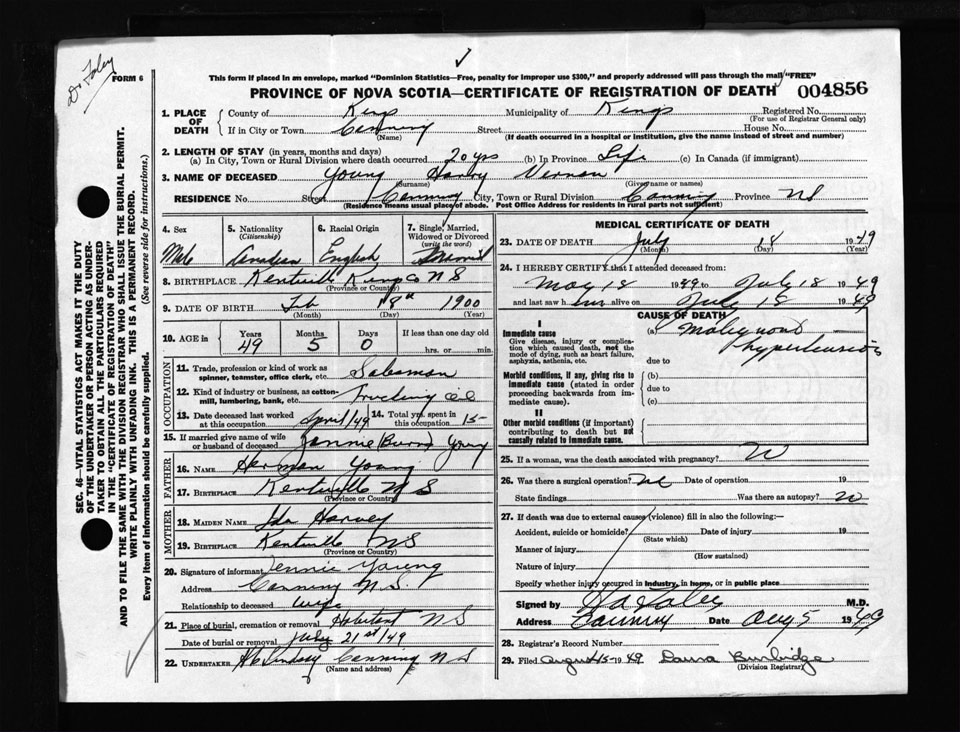 Dr Foley
FORM 6
This form if placed in an envelope, marked "Dominion Statistics—Free, penalty for improper use $300," and properly addressed will pass through the mail "FREE"
PROVINCE OF NOVA SCOTIA—CERTIFICATE OF REGISTRATION OF DEATH 004856
SEC. 46—VITAL STATISTICS ACT MAKES IT THE DUTY
OF THE UNDERTAKER OR PERSON ACTING AS UNDER-
TAKER TO OBTAIN ALL THE PARTICULARS REQUIRED
IN THE "CERTIFICATE OF REGISTRATION OF DEATH"
AND TO FILE THE SAME WITH THE DIVISION REGISTRAR WHO SHALL ISSUE THE BURIAL PERMIT.
WRITE PLAINLY WITH UNFADING INK. THIS IS A PERMANENT RECORD.
Every item of information should be carefully supplied. (See reverse side for instructions.)
1. PLACE OF DEATH County of Kings Municipality of Kings Registered No.
(For use of Registrar General only)
If in City or Town Canning Street House No.
(Name) (If death occurred in a hospital or institution, give the name instead of street and number)
2. LENGTH OF STAY (in years, months and days)
(a) In City, Town or Rural Division where death occurred 20 yrs (b) In Province Life (c) In Canada (if immigrant)
3. NAME OF DECEASED Young Harry Vernon
(Surname) (Given name or names)
RESIDENCE No. Street Canning City, Town or Rural Division Canning Province NS
(Residence means usual place of abode. Post Office Address for residents in rural parts not sufficient)
4. Sex 5. Nationality (Citizenship) 6. Racial Origin 7. Single, Married, Widowed or Divorced (write the word)
Male Canadian English Married
8. BIRTHPLACE Kentville Kings Co NS
(Province or Country)
9. DATE OF BIRTH Feb 18th 1900
(Month) (Day) (Year)
10. AGE in Years Months Days If less than one day old
49 5 0 hrs. or min.
OCCUPATION
11. Trade, profession or kind of work as spinner, teamster, office clerk, etc. Salesman
12. Kind of industry or business, as cotton-mill, lumbering, bank, etc. Traveling
13. Date deceased last worked at this occupation April/49 14. Total yrs. spent in this occupation 15
15. If married give name of wife or husband of deceased (Burns) Young
FATHER
16. NAME Herman Young
17. BIRTHPLACE Kentville NS
(Province or Country)
MOTHER
18. MAIDEN NAME Ida Harvey
19. BIRTHPLACE Kentville NS
(Province or Country)
20. Signature of informant Jennie Young
Address Canning N.S.
Relationship to deceased wife
21. Place of burial, cremation or removal Habitant NS
Date of burial or removal July 21st/49
22. UNDERTAKER Lindsay Canning NS
(Name and address)
MEDICAL CERTIFICATE OF DEATH
23. DATE OF DEATH July 18 1949
(Month) (Day) (Year)
24. I HEREBY CERTIFY that I attended deceased from:
May 18 1949 to July 18 1949
and last saw him alive on July 18 1949
CAUSE OF DEATH
I
Immediate cause
Give disease, injury or complication which caused death, not the mode of dying, such as heart failure, asphyxia, asthenia, etc.
(a) Malignant
hypertension
due to
Morbid conditions, if any, giving rise to immediate cause (stated in order proceeding backwards from immediate cause).
(b)
due to
(c)
II
Other morbid conditions (if important) contributing to death but not causally related to immediate cause.
25. If a woman, was the death associated with pregnancy?
26. Was there a surgical operation? No Date of operation 19
State findings Was there an autopsy? no
27. If death was due to external causes (violence) fill in also the following:—
Accident, suicide or homicide? Date of injury 19
(State which)
Manner of injury
(How sustained)
Nature of injury
Specify whether injury occurred in industry, in home, or in public place
Signed by Foley M.D.
Address Canning Date Aug 5 1949
28. Registrar's Record Number
29. Filed August 15-1949 Laura Burbidge
(Division Registrar)